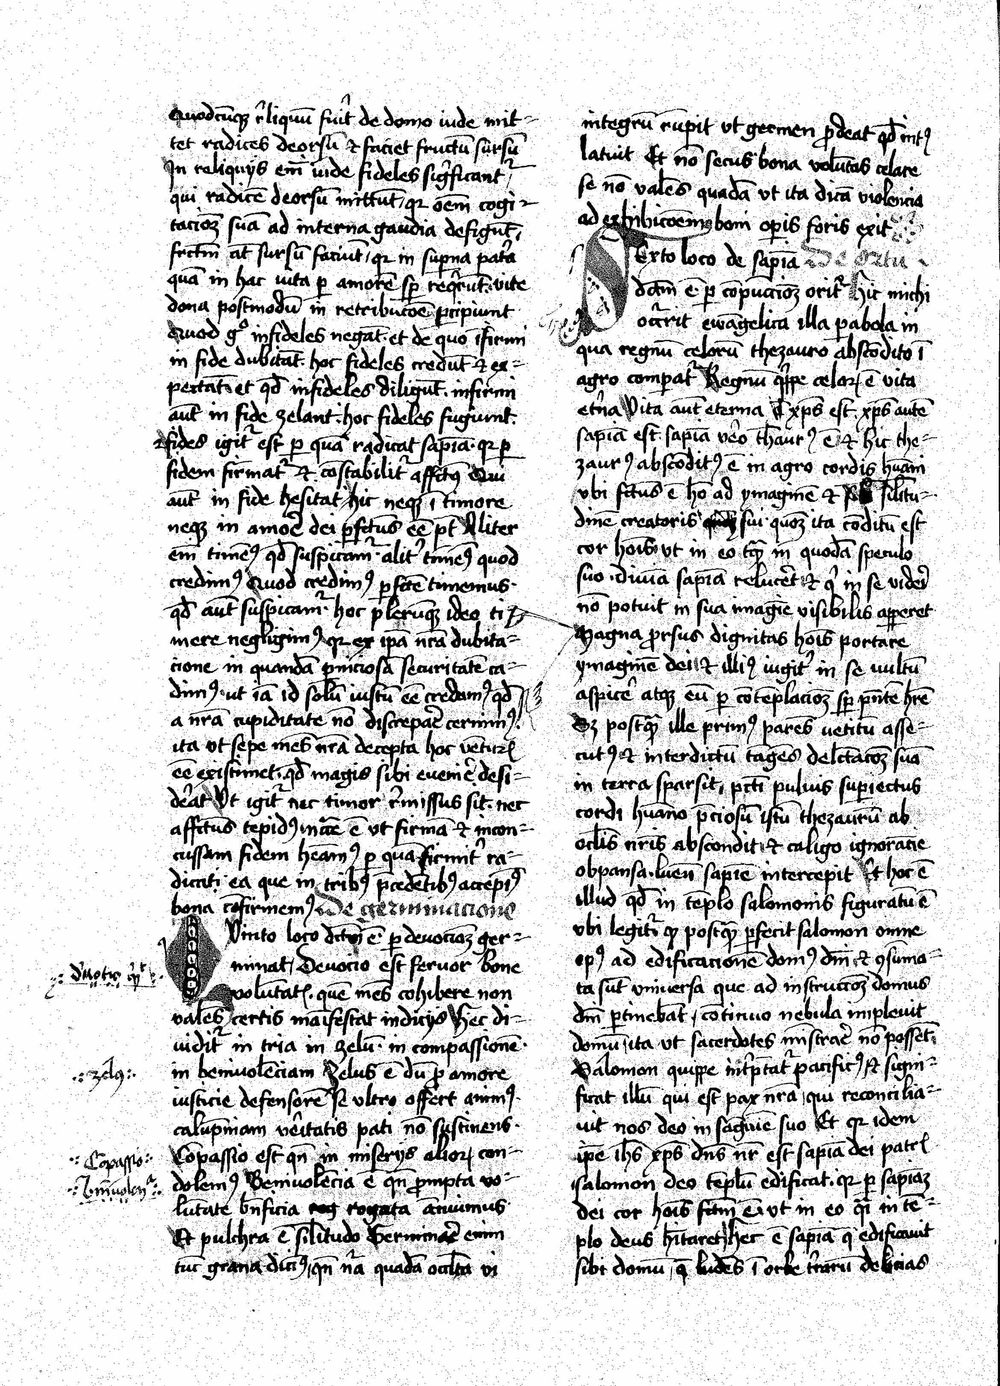 Quodcūq̄ʒ r̄liquū fuīt de domo iude mit-
tet radices deorsū et faciet fructū sursū
In reliquijs em̄ iude fideles sigīficantʳ
qui radicē deorsū mittūt, qꝛ om̄em cogi-
tacioꝫ suā ad interna gaudia defigūt,
fructū aūt sursū faciūt, qꝛ in sup̄na pat̄a
quā in hac vita ꝑ amorē sp̄ req̄rūt. vite
dona postmodū in retribucōe p̄cipiunt
Quod g° infideles negāt. et de quo īfirmi
in fide dubitāt. hoc fideles credūt et ex-
pectāt. et qd̄ infideles diligūt. infirmi
aūt in fide zelant. hoc fideles fugiunt.
fides igitʳ est ꝑ quā radicat᷑ sapīa. qꝛ ꝑ
fidem firmatʳ et cōstabilitʳ affctꝰ Qui
aūt in fide hesitat hic neqꝫ ī timore
neqꝫ in amoē dei ꝑfctus eē pt̄ Aliter
em̄ timemꝰ qd̄ suspicamʳ. alitʳ timemꝰ quod
credimꝰ Quod credimꝰ ꝑfcte timemus.
qd̄ aūt suspicamʳ. hoc plerūqꝫ ideo ti
mere negligimꝰ, qꝛ ex ip̄a nr̄a dubita-
cione in quandā ꝑniciosā securitatē ca-
dimꝰ. ut iā id solū iustū eē credamꝰ, qd̄
a nr̄a cupiditate nō discrepar̄ cernimꝰ.
ita ut sepe mēs nr̄a decepta hoc ventuꝝ
eē existimet. qd̄ magis sibi evenir̄ desi-
derat Ut igitʳ nec timor r̄missus sit. nec
affctus tepidꝰ, ncc̄e ē ut firmā et incon-
cussam fidem hēamꝰ ꝑ quā firmitʳ ra-
dicati. ea que in tribꝰ p̄cedētibꝰ accepimꝰ
bona cōfirmemꝰ De germinacione
Quinto loco dctm̄ ē ꝑ devocioꝫ ger-
minat, Devocio est fervor bone
volūtatꝭ. quē mēs cohibere non
valēs, certis manifestat indicijs Hec di-
viditʳ in tria in zelū in compassionē.
in benivolēciam Zelus ē dū pro amore
iusticie defensorē se ultro offert animꝰ.
calupniam vēritatis pati nō sustinens.
Cōpassio est qn̄ in miserijs alioꝝ con-
dolemꝰ Benivolēcia ē qn̄ prompta vo-
lūtate bn̄ficia rog rogata ānuimus
Et pulchra ē silitudo Germinar̄ enim
tūc grana dicimꝰ, qn̄ nr̄a quadā occlta vi
devotio qͥd
zelꝰ
Cōpassio
benivolenᵃ
integrū rupit ut germen ꝓdeat qd̄ intꝰ
latuit Et nō secus bona volūtas celare
se nō valēs quadā ut ita dicā violencia
ad exhibicōem boni operis foris exit
Sexto loco de sapīa De Ortu
dctm̄ ē ꝑ cōpunccioꝫ oritʳ Hic michi
occr̄rit ewāgelica illa parabola in
qua regnū celorū thezauro abscōdito ī
agro comparatʳ Regnū quippe celoꝝ ē vita
et̄na Vita aūt eterna xp̄s est. xp̄s autē
sapīa est. sapīa vero thaurꝰ ē et hic the-
zaurꝰ absconditꝰ ē in agro cordis hūani
ubi fctus ē hō ad ymaginē et silitu-
dinē creatoris sui. quoꝫ ita cōditū est
cor hoīs ut in eo tāq̄ in quodā speculo
suo. divina sapīa relucēt et q̄ in se videri
nō potuit in sua imagīe visibilis appareret
Magna prorsus dignitas hoīs portare
ymaginē dei et illiꝰ iugitʳ in se vultū
aspicē atqꝫ eū ꝑ cōtemplacioꝫ sp̄ p̄ntē hr̄e
Sꝫ postq̄ ille primꝰ parēs vetitū asse-
cutꝰ et interdictū tangēs delctacoꝫ suā
in terra sparsit, pcti pulvis suꝑiectus
cordi hūano p̄ciosū istū thezaurū ab
oclis nr̄is abscondit et caligo ignorācie
obpansa. lucē sapīe intercepit Et hoc ē
illud qd̄ in tēplo salomonis figuratū ē
ubi legitʳ qꝫ postq̄ perfecit salomon omne
opꝰ ad edificacionē domꝰ dn̄i et ꝯsuma-
ta sūt universa que ad instruccoꝫ domus
dn̄i ꝑtinebāt, cōtinuo nebula implevit
domū, ita ut sacerdotes ministrar̄ nō possēt.
Salomon quippe int̄ꝓtatʳ pacificꝰ, Et signi-
ficat illū qui est pax nr̄a, qui reconcilia-
vit nos deo in sāguīe suo Et qꝛ idem
ip̄e ihs xp̄s dn̄s nr̄ est sapīa dei patrꝭ
salomon deo tēplū edificat. qꝛ ꝑ sapīaꝫ
dei cor hoīs fctm̄ ē, ut in eo q̄i in tē-
plo deus hītaret, hec ē sapīa q̄ edificavit
sibi domū, q̄ ludēs ī orbe tr̄arū delicias